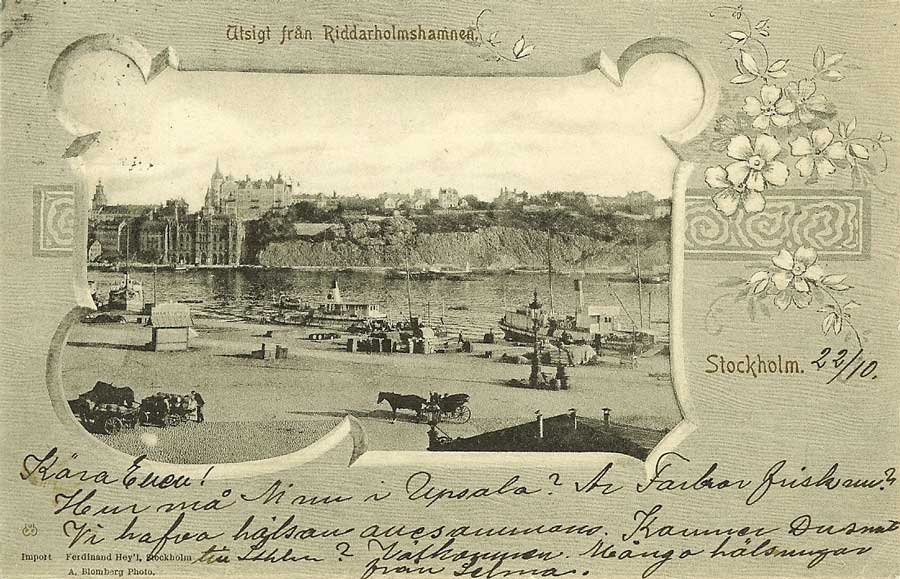 Utsigt från Riddarholmshamnen.
Stockholm. 22/10.
Kära Ellen!
Hur må Ni nu i Upsala? Är Farbror frisk nu?
Vi hafva hälsan allesammans. Kommer Du snart
till Sthlm? Välkommen. Många hälsningar
från Selma.
Import Ferdinand Hey'l, Stockholm
A. Blomberg Photo.